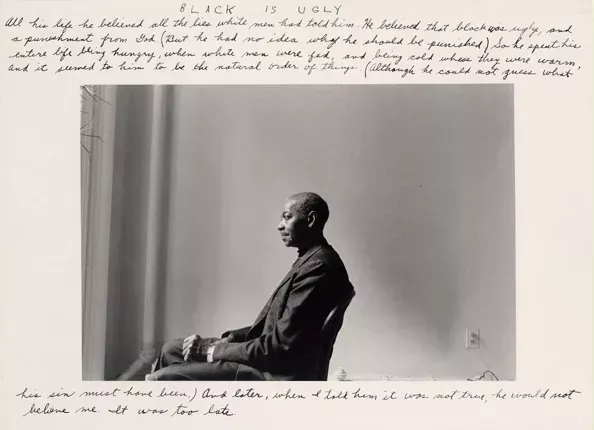 BLACK IS UGLY
All his life he believed all the lies white men had told him. He believed that black was ugly, and
a punishment from God (But he had no idea what he should be punished) So he spent his
entire life being hungry, when white men were fed, and being cold when they were warm,
and it seemed to him to be the natural order of things (Although he could not guess what
his sin must have been.) And later, when I told him it was not true, he would not
believe me. It was too late